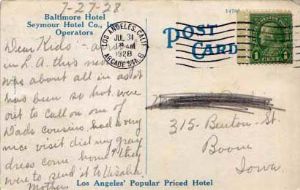 7-27-28
Baltimore Hotel
Seymour Hotel Co., Inc.
Operators
POST
CARD
LOS ANGELES, CALIF.
JUL 31
1928
ARCADE STA.
Dear Kids - a
in L.A. this
was about all in as it
has been so hot. were
out to call on one of
Dads cousins. had a very
nice visit did my gray
dress come home? they
were to send it to
Mother
315- Benton St
Boone
Iowa
Los Angeles' Popular Priced Hotel